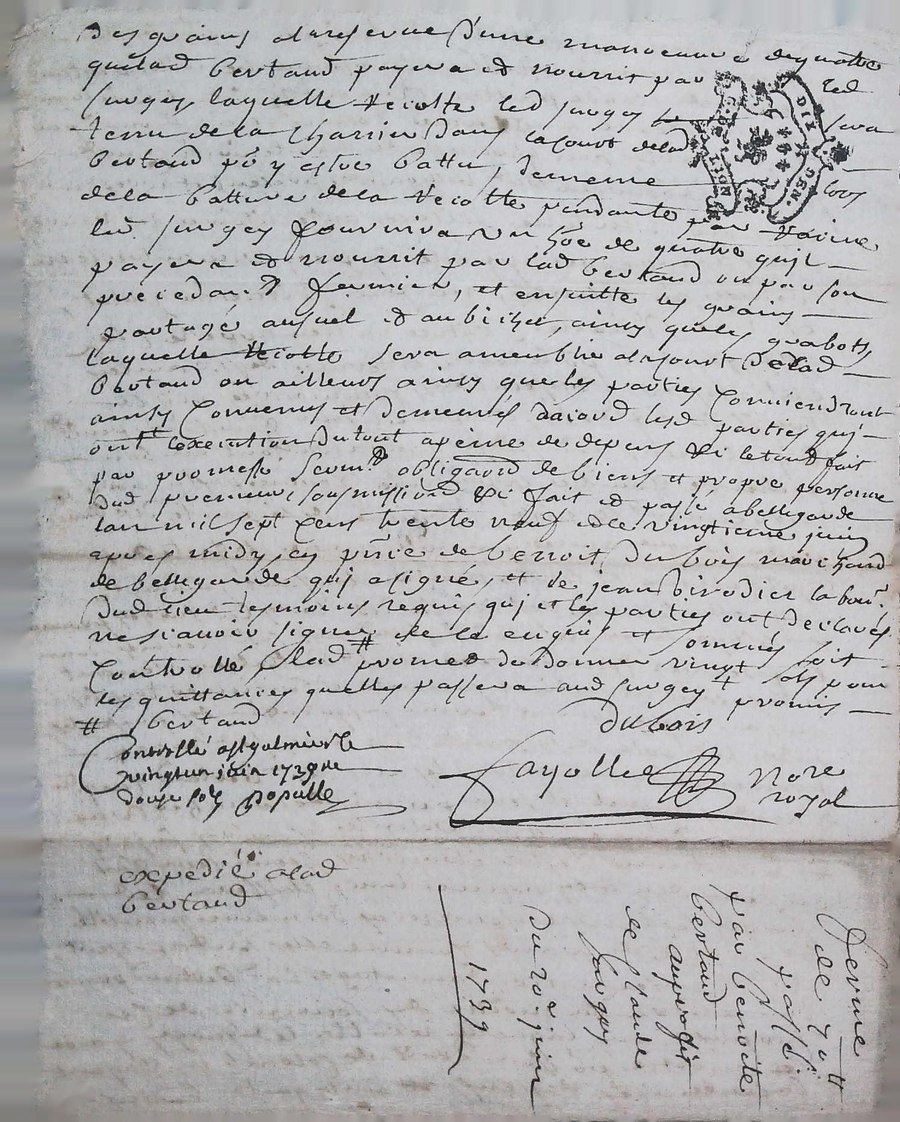 des grains a la reserve d'une manoeuvre de quatre
que lad bertaud payera et nourrit par led
surgey laquelle recolte led surgey sera
tenu de la charrier dans la court delad
bertaud pr y estre battu, de meme lors
de la batture de la recolte pendante par racine
led surgey fournira un hoe de quatre qui
payera et nourrit par lad bertaud ou par son
precedant fermier, et ensuitte les grains
partagé au suel et au bichet, ainsy que les
laquelle recolte sera ameublie a la court delad
bertaud ou ailleurs ainsy que les parties conviendront
ainsy convenus et demeurés daccord lesd parties qui
ont lexecution du tout a peine de depens le tout fait
par promesse sermt obligaon de biens et propre personne
dud preneur sousmissions fait et passé a bellegarde
lan mil sept cens trente neuf et le vingtieme juin
apres midy en pnce de benoit dubois marchand
de bellegarde qui a signé, et de jean birodier labour
dud lieu tesmoins requis qui et les parties ont declarés
ne scavoir signer de ce enquis et sommés soit
controllé lad # promet de donner vingt sols pour
les quittances quelles passera aud surgey + promis
# bertaud
dubois
Controllé a st galmier le
vingt un juin 1739 re
douze sols populle
fayolle nore
royal
expedié a lad
bertaud
ferme
de 70 #
passé
par benoite
bertaud
au profit
de claude
surgey
du 20e juin
1739